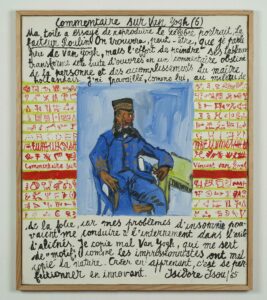 Commentaire sur Van Gogh (6)
Ma toile a essayé de reproduire le célèbre portrait, le
facteur Roulin. On trouvera, peut-être, que je peins
de Van Gogh, mais l'effort de peindre des tableaux
transforme cette suite d'œuvres en un commentaire
de la personne et des accomplissements du maître
hollandais. J'ai travaillé, comme lui, au milieu de
de la folie, car mes problèmes d'insomnie pou-
vaient me conduire à l'internement dans l'asile
d'aliénés. Je copie mal Van Gogh, qui me sert
de "motif", comme les impressionnistes ont mal
copié la nature. Créer en apprenant, c'est se per-
fectionner en innovant. Isidore Isou/85